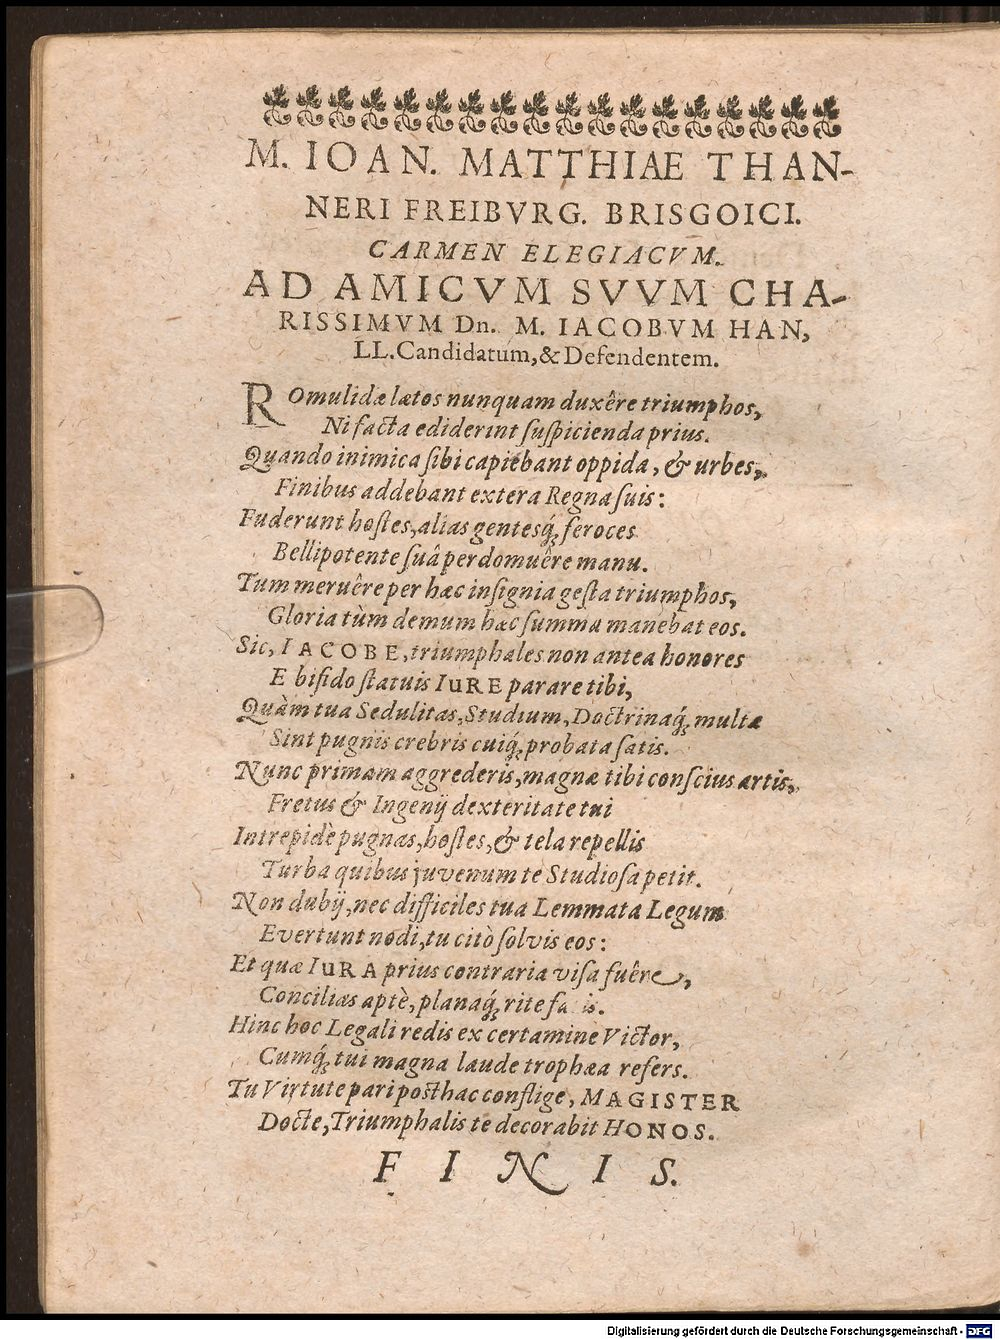 M. IOAN. MATTHIAE THAN-
NERI FREIBVRG. BRISGOICI.
CARMEN ELEGIACVM.
AD AMICVM SVVM CHA-
RISSIMVM Dn. M. IACOBVM HAN,
LL. Candidatum, & Defendentem.
ROmulidæ lætos nunquam duxêre triumphos,
Ni facta ediderint ſuſpicienda prius.
Quando inimica ſibi capiebant oppida, & urbes,
Finibus addebant extera Regna ſuis:
Fuderunt hoſtes, alias gentesq́; feroces
Bellipotente ſuâ perdomuêre manu.
Tum meruêre per hæc inſignia geſta triumphos,
Gloria tùm demum hæc ſumma manebat eos.
Sic, IACOBE, triumphales non antea honores
E bifido ſtatuis IuRE parare tibi,
Quàm tua Sedulitas, Studium, Doctrinaq́; multæ
Sint pugnis crebris cuiq́; probata ſatis.
Nunc primam aggrederis, magnæ tibi conſcius artis,
Fretus & Ingenij dexteritate tui
Intrepidè pugnas, hoſtes, & tela repellis
Turba quibus juvenum te Studioſa petit.
Non dubij, nec difficiles tua Lemmata Legum
Evertunt nodi, tu citò ſolvis eos:
Et quæ IuRA prius contraria viſa fuêre,
Concilias aptè, planaq́; rite
Hinc hoc Legali redis ex certamine Victor,
Cumq́; tui magna laude trophæa refers.
Tu Virtute pari poſthac conflige, MAGISTER
Docte, Triumphalis te decorabit HONOS.
FINIS.
Digitalisierung gefördert durch die Deutsche Forschungsgemeinschaft - DFG